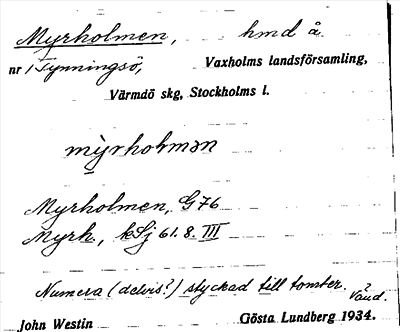 Myrholmen, hmd å
nr 1 Tynningsö, Vaxholms landsförsamling,
Värmdö skg, Stockholms l.
mỳ̱rholmən
Myrholmen, G 76
Myrh., kSj 61. 8. III
Numera (delvis?) styckad till tomter.
Vänd.
John Westin Gösta Lundberg 1934.